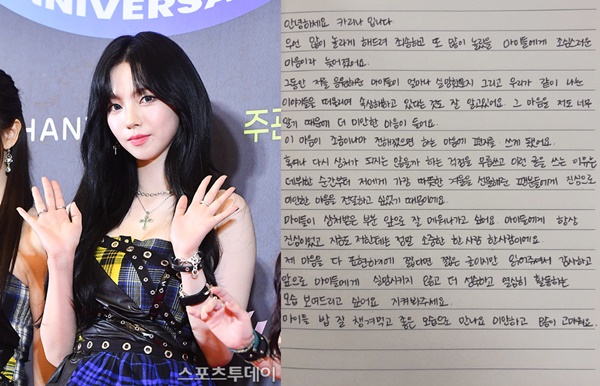 UNIVERSA
HAN
주관
스포츠투데이
안녕하세요 카리나 입니다
우선 많이 놀라게 해드려 죄송하고 또 많이 놀랐을 마이들에게 조심스러운
마음이라 늦어졌어요.
그동안 저를 응원해준 마이들이 얼마나 실망했을지 그리고 우리가 같이 나눈
이야기들을 떠올리며 속상해하고 있다는것도 잘 알고있어요. 그 마음을 저도 너무
알기 때문에 더 미안한 마음이 들어요.
이 마음이 조금이나마 전해졌으면 하는 마음에 편지를 쓰게 됐어요.
혹여나 다시 상처가 되지는 않을까 하는 걱정을 무릅쓰고 이런 글을 쓰는 이유는
데뷔한 순간부터 저에게 가장 따뜻한 겨울을 선물해준 팬분들에게 진심으로
미안한 마음을 전달하고 싶었기 때문이에요.
마이들이 상처받은 부분 앞으로 잘 메워나가고 싶어요. 마이들에게 항상
진심이었고 지금도 저한테는 정말 소중한 한 사람 한사람이에요.
제 마음을 다 표현하기에 짧다면 짧은 글이지만 읽어주셔서 감사하고
앞으로 마이들에게 실망시키지 않고 더 성숙하고 열심히 활동하는
모습 보여드리고 싶어요 지켜봐주세요.
마이들 밥 잘 챙겨먹고 좋은 모습으로 만나요 미안하고 많이 고마워요.